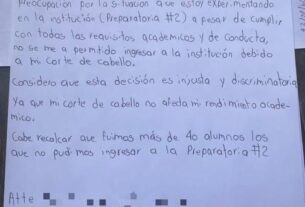 Preocupación por la situación que estoy experimentando
en la institución (Preparatoria #2) a pesar de cumplir
con todas las requisitos academicos y de conducta,
no se me a permitido ingresar a la institución debido
a mi corte de cabello.
Considero que esta decisión es injusta y discriminatoria
Ya que mi corte de cabello no afecta mi rendimiento acade-
mico.
Cabe recalcar que fuimos más de 40 alumnos los
que no pudimos ingresar a la Preparatoria #2
Atte